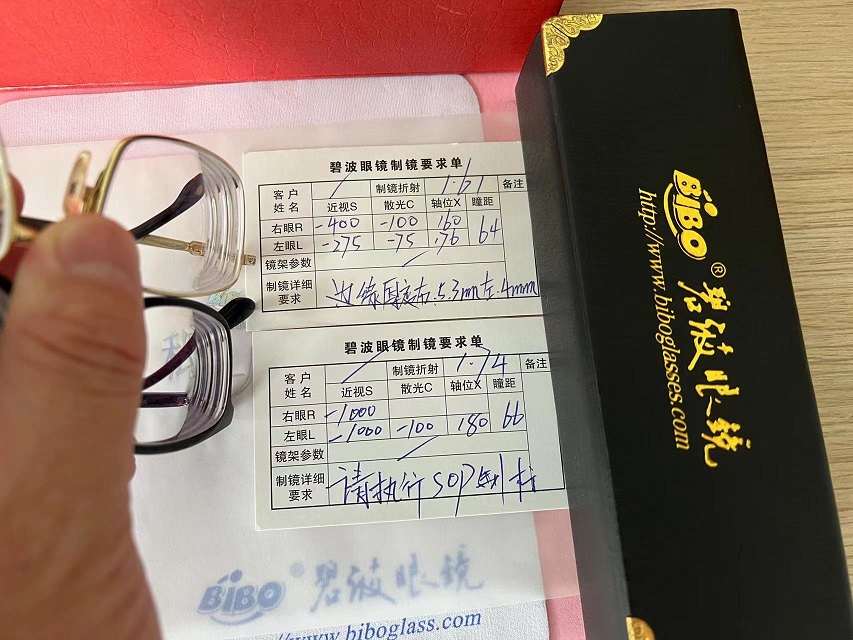 碧波眼镜制镜要求单
客户姓名 制镜折射 1.61 备注
近视S 散光C 轴位X 瞳距
右眼R -400 -100 160 64
左眼L -275 -75 170
镜架参数
制镜详细要求 边缘厚度右5.3mm左.4mm
碧波眼镜制镜要求单
客户姓名 制镜折射 1.74 备注
近视S 散光C 轴位X 瞳距
右眼R -1000 66
左眼L -1000 -100 180
镜架参数
制镜详细要求 请执行SOP
BiBO® 碧波眼镜
http://www.biboglasses.com
BiBO® 碧波眼镜
//www.biboglass.com